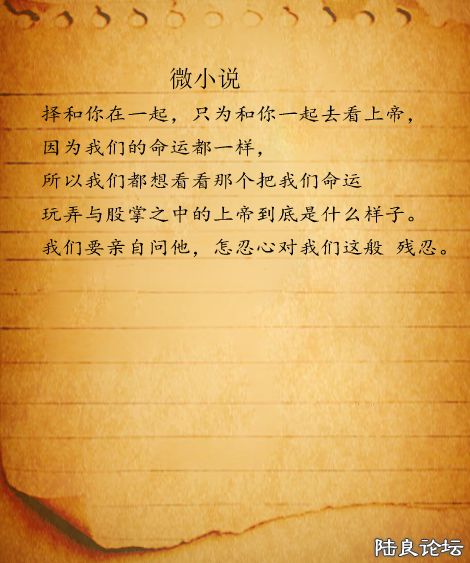 微小说
择和你在一起，只为和你一起去看上帝，
因为我们的命运都一样，
所以我们都想看看那个把我们命运
玩弄与股掌之中的上帝到底是什么样子。
我们要亲自问他，怎忍心对我们这般 残忍。
陆良论坛